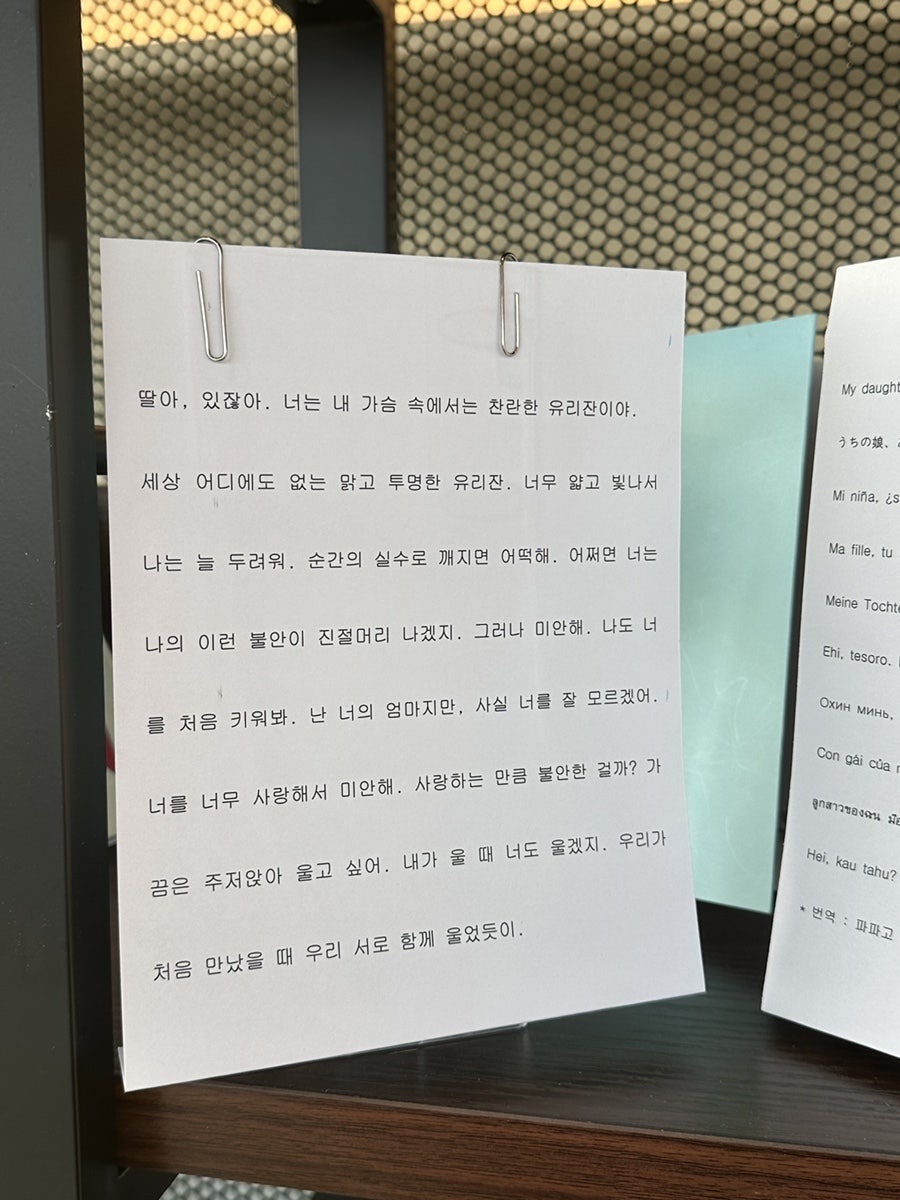 딸아, 있잖아. 너는 내 가슴 속에서는 찬란한 유리잔이야.
세상 어디에도 없는 맑고 투명한 유리잔. 너무 얇고 빛나서
나는 늘 두려워. 순간의 실수로 깨지면 어떡해. 어쩌면 너는
나의 이런 불안이 진절머리 나겠지. 그러나 미안해. 나도 너
를 처음 키워봐. 난 너의 엄마지만, 사실 너를 잘 모르겠어.
너를 너무 사랑해서 미안해. 사랑하는 만큼 불안한 걸까? 가
끔은 주저앉아 울고 싶어. 내가 울 때 너도 울겠지. 우리가
처음 만났을 때 우리 서로 함께 울었듯이.
My daught
うちの娘、
Mi niña, ¿s
Ma fille, tu
Meine Tochte
Ehi, tesoro.
Охин минь,
Con gái của
ลูกสาวของฉัน
Hei, kau tahu?
* 번역 : 파파고